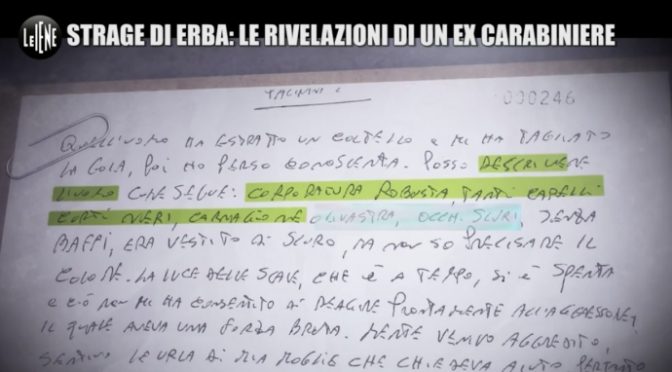 LE IENE
STRAGE DI ERBA: LE RIVELAZIONI DI UN EX CARABINIERE
000246
QUELL'UOMO HA ESTRATTO UN COLTELLO E MI HA TAGLIATO
LA GOLA, POI HO PERSO CONOSCENZA. POSSO DESCRIVERE
L'UOMO COME SEGUE: CORPORATURA ROBUSTA, TANTI CAPELLI
CORTI NERI, CARNAGIONE OLIVASTRA, OCCHI SCURI, SENZA
BAFFI, ERA VESTITO DI SCURO, MA NON SO PRECISARE IL
COLORE. LA LUCE DELLE SCALE, CHE È A TEMPO, SI È SPENTA
E CIÒ NON MI HA CONSENTITO DI REAGIRE PRONTAMENTE ALL'AGGRESSORE,
IL QUALE AVEVA UNA FORZA BRUTA. MENTRE VENIVO AGGREDITO,
SENTIVO LE URLA DI MIA MOGLIE CHE CHIEDEVA AIUTO PERTANTO